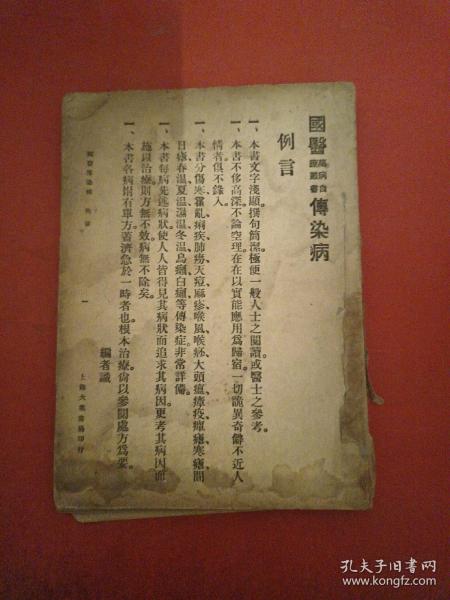 國醫萬病自療叢書傳染病
例言
一、本書文字淺顯撰句簡潔極便一般人士之閱讀或醫士之參考。
一、本書不侈高深不論空理在在以實能應用爲歸宿一切詭異奇僻不近人
情者俱不錄入。
一、本書分傷寒霍亂痢疾肺癆天痘麻疹喉風喉痧大頭瘟瘴疫瘟瘧寒瘧間
日瘧春溫夏溫濕溫冬溫烏痧白痧等傳染症非常詳備。
一、本書每病先述病狀使人人皆得見其病狀而追求其病因更考其病因而
施以治療則方無不效病無不除矣。
一、本書各病附有單方蓋濟急於一時者也根本治療尙以參閱處方爲要。
編者識
例言
一
上海大衆書局印行
孔夫子旧书网
www.kongfz.com